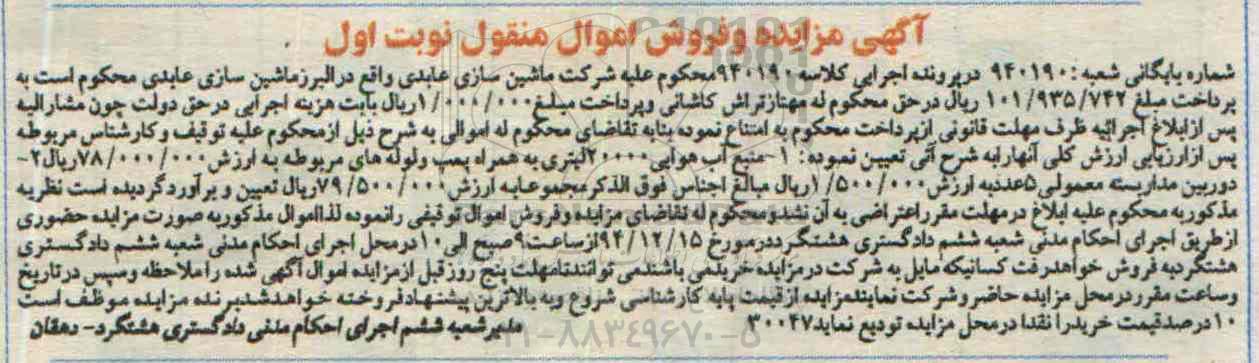 آگهی مزایده وفروش اموال منقول نوبت اول
شماره بایگانی شعبه: ۹۴۰۱۹۰ درپرونده اجرایی کلاسه ۹۴۰۱۹۰محکوم علیه شرکت ماشین سازی عابدی واقع درالبرزماشین سازی عابدی محکوم است به
پرداخت مبلغ ۱۰۱/۹۳۵/۷۴۲ ریال درحق محکوم له مهنازتراش کاشانی وپرداخت مبلغ۱/۰۰۰/۰۰۰ریال بابت هزینه اجرایی درحق دولت چون مشارالیه
پس ازابلاغ اجرائیه ظرف مهلت قانونی ازپرداخت محکوم به امتناع نموده بنابه تقاضای محکوم له اموالی به شرح ذیل ازمحکوم علیه توقیف وکارشناس مربوطه
پس ازارزیابی ارزش کلی آنهارابه شرح آتی تعیین نموده: ۱-منبع آب هوایی۲۰۰۰۰لیتری به همراه پمپ ولوله های مربوطه به ارزش۷۸/۰۰۰/۰۰۰ریال۲-
دوربین مداربسته معمولی۵عددبه ارزش۱/۵۰۰/۰۰۰ریال مبالغ اجناس فوق الذکرمجموعابه ارزش۷۹/۵۰۰/۰۰۰ریال تعیین وبرآوردگردیده است نظریه
مذکوربه محکوم علیه ابلاغ درمهلت مقرراعتراضی به آن نشدومحکوم له تقاضای مزایده وفروش اموال توقیفی رانموده لذااموال مذکوربه صورت مزایده حضوری
ازطریق اجرای احکام مدنی شعبه ششم دادگستری هشتگرددرمورخ ۹۴/۱۲/۱۵ازساعت۹صبح الی۱۰درمحل اجرای احکام مدنی شعبه ششم دادگستری
هشتگردبه فروش خواهدرفت کسانیکه مایل به شرکت درمزایده خریدمی باشندمی توانندتامهلت پنج روزقبل ازمزایده اموال آگهی شده راملاحظه وسپس درتاریخ
وساعت مقرردرمحل مزایده حاضروشرکت نمایندمزایده ازقیمت پایه کارشناسی شروع وبه بالاترین پیشنهادفروخته خواهدشدبرنده مزایده موظف است
۱۰درصدقیمت خریدرا نقدا درمحل مزایده تودیع نماید۳۰۰۴۷ مدیرشعبه ششم اجرای احکام مدنی دادگستری هشتگرد- دهقان
۰۲۱-۸۸۳۴۹۶۷۰-۵